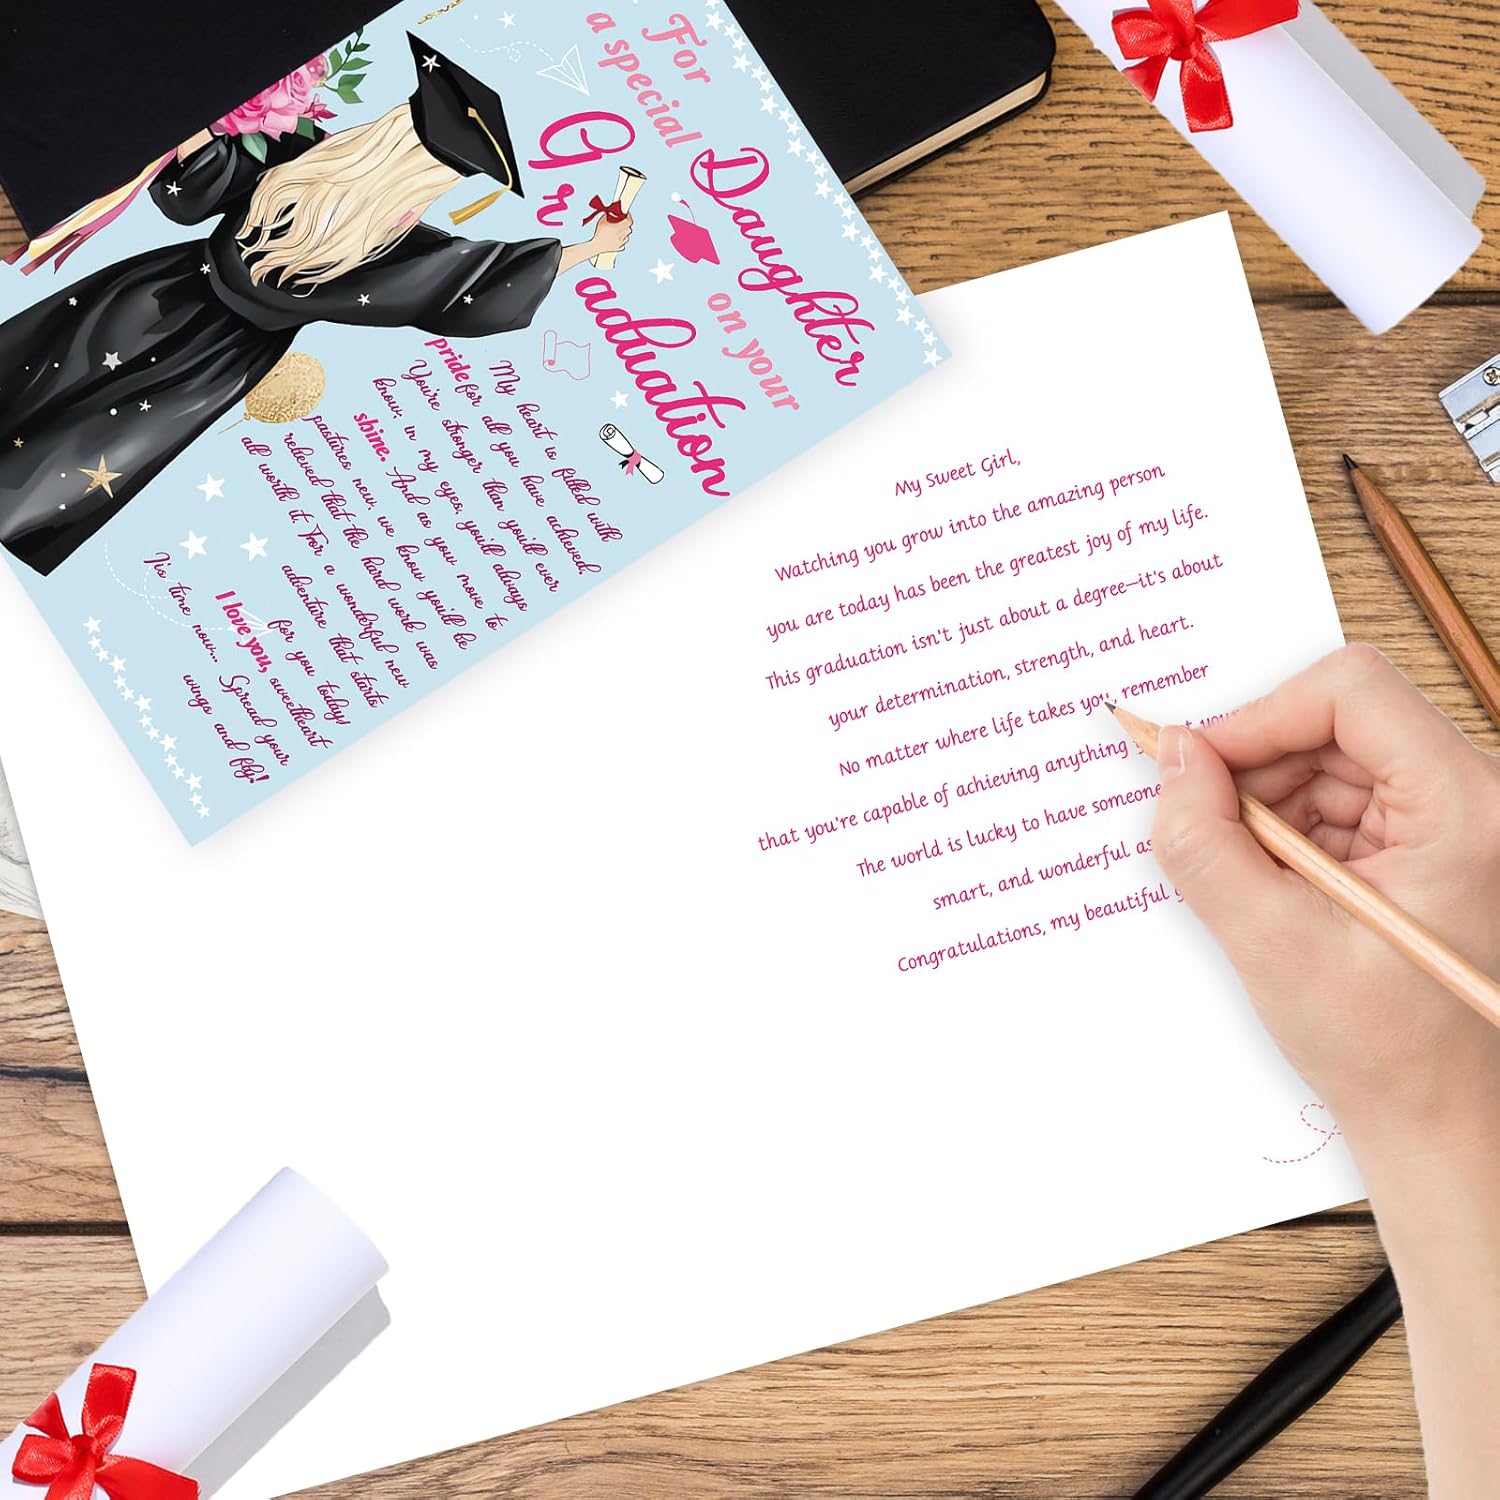 For
a special
Daughter
on your
Graduation
My heart is filled with
pride for all you have achieved.
You're stronger than you'll ever
know; in my eyes, you'll always
shine. And as you move to
pastures new, we know you'll be
relieved that the hard work was
all worth it. For a wonderful new
adventure that starts
for you today!
I love you, sweetheart
It's time now... Spread your
wings and fly!
My Sweet Girl,
Watching you grow into the amazing person
you are today has been the greatest joy of my life.
This graduation isn't just about a degree—it's about
your determination, strength, and heart.
No matter where life takes you, remember
that you're capable of achieving anything
The world is lucky to have someone
smart, and wonderful as
Congratulations, my beautiful